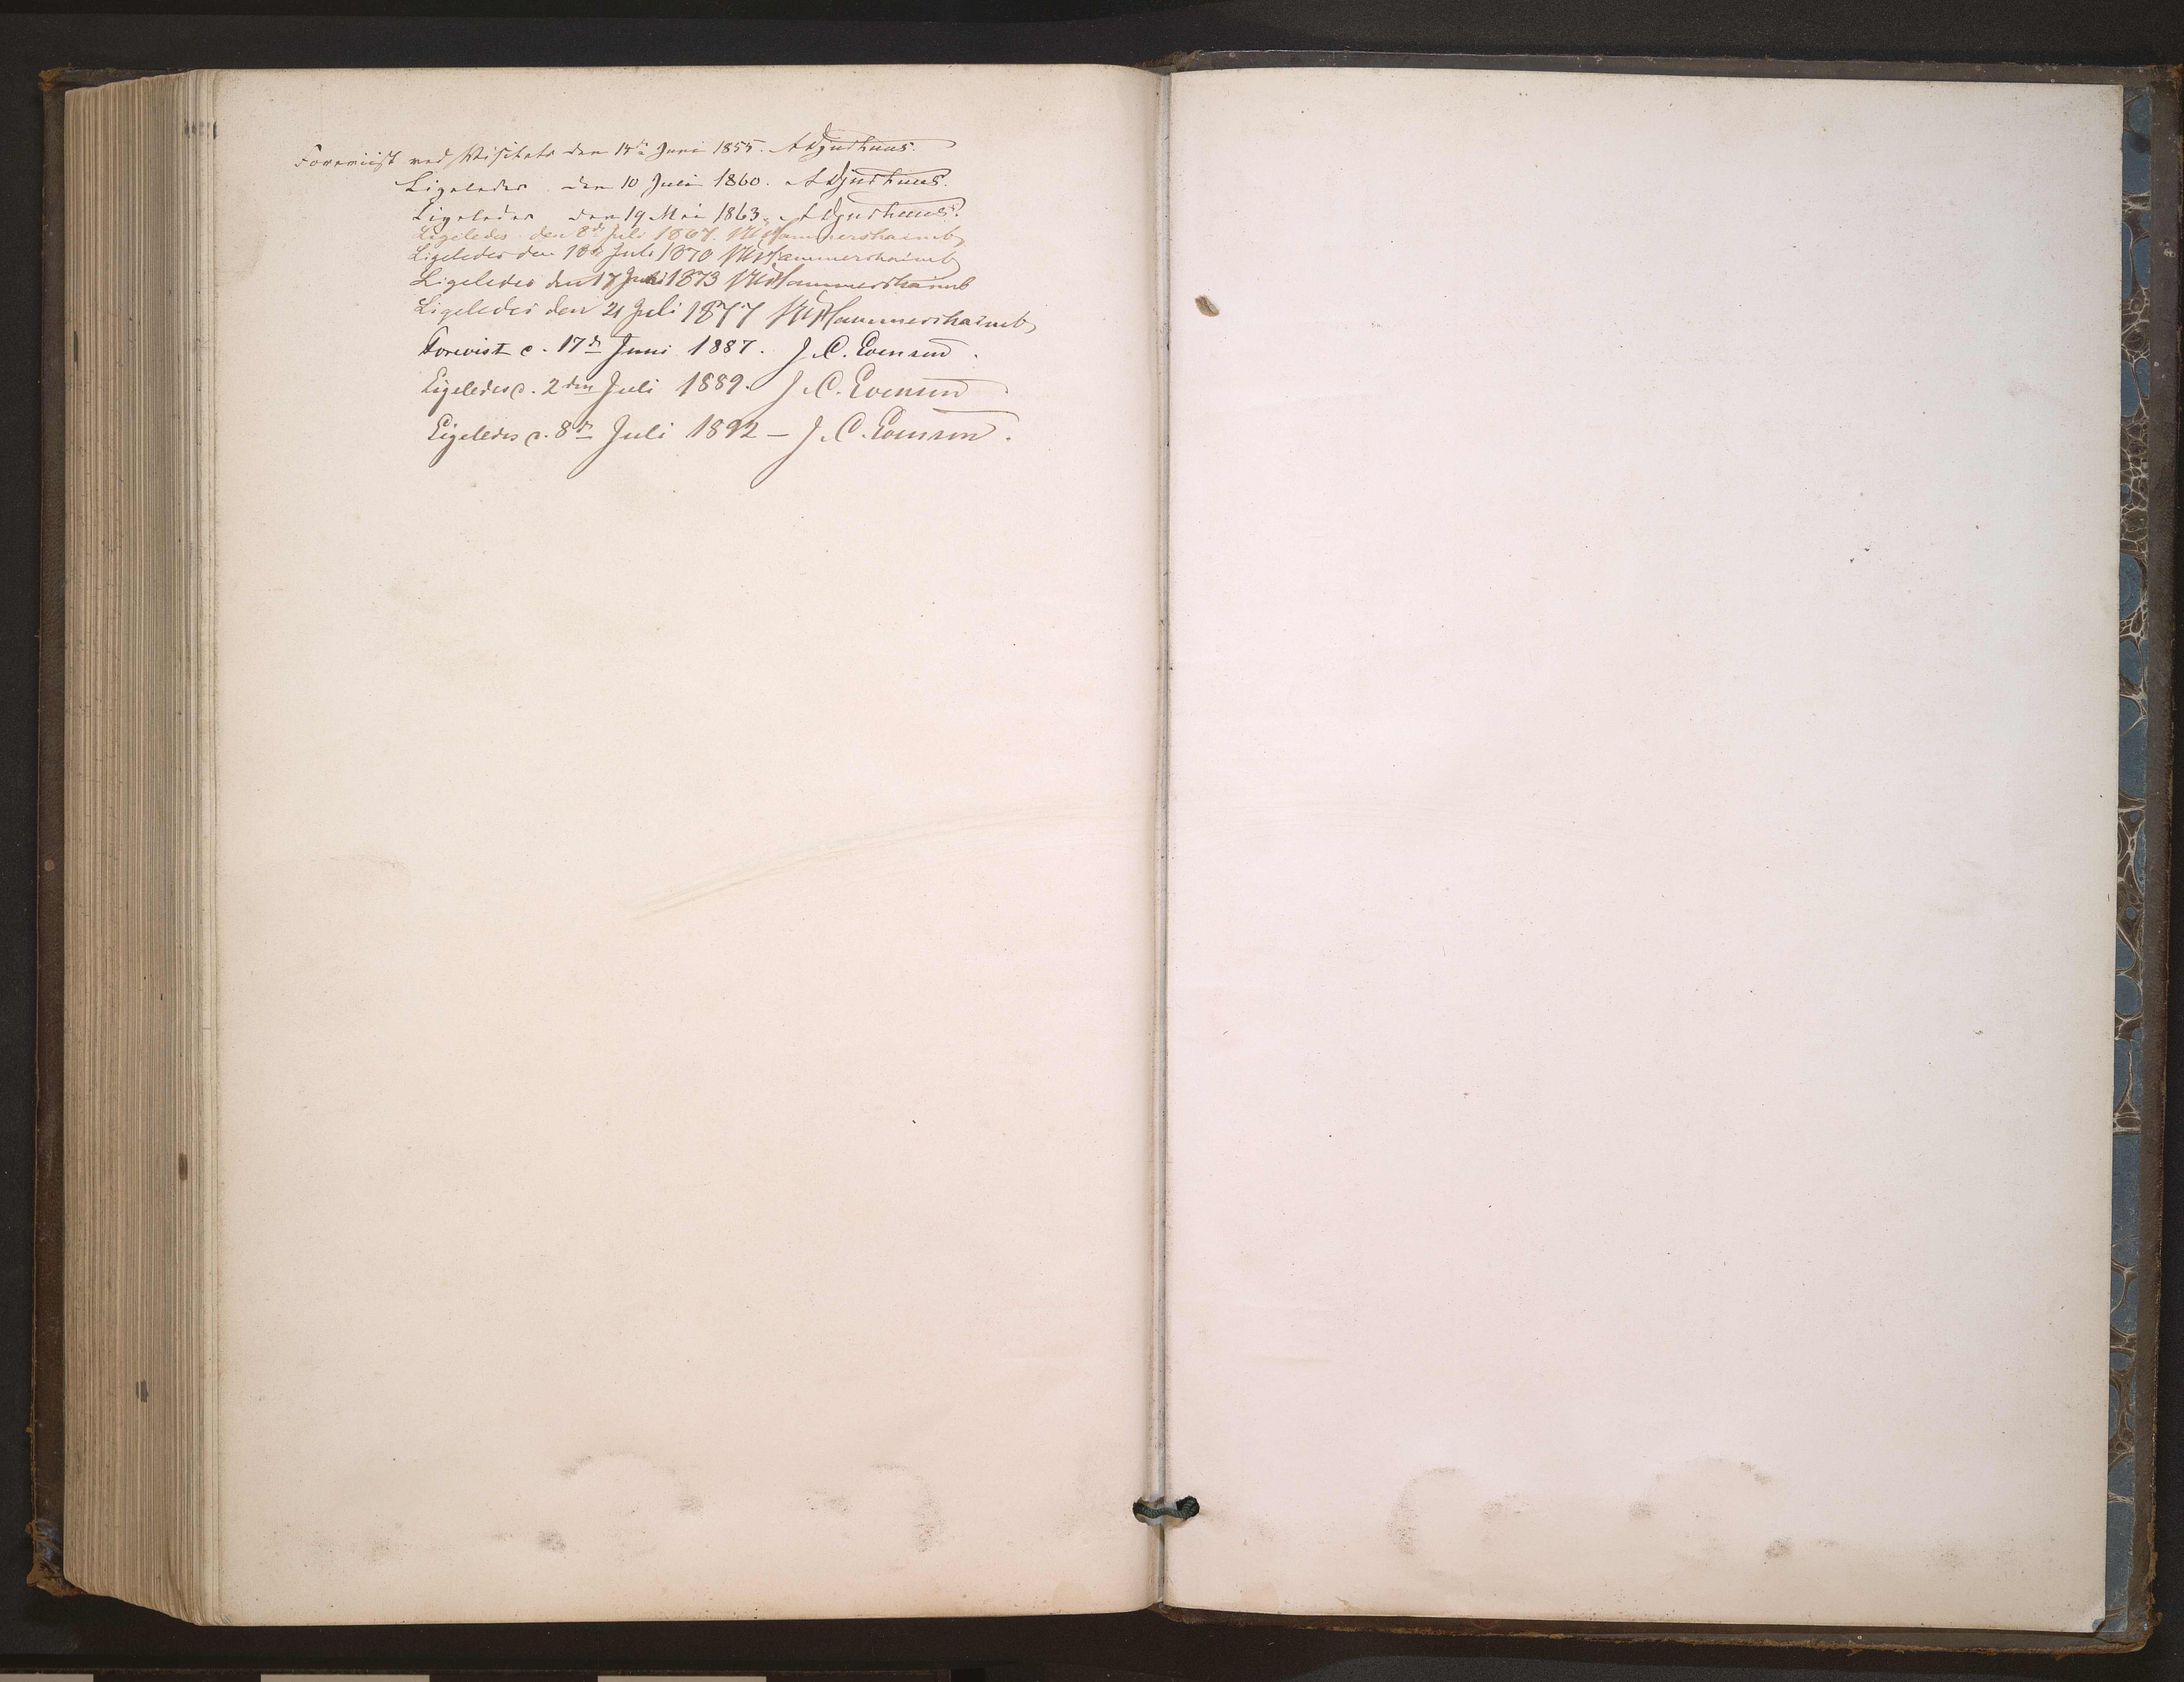 Foreviist ved Visitats den 14de Juni 1855. A Djurhuus.
Ligeledes den 10 Juli 1860. A Djurhuus.
Ligeledes den 19 Mai 1863. A Djurhuus.
Ligeledes den 8de Juli 1867. VUHammershaimb
Ligeledes den 18de Juli 1870 VUHammershaimb
Ligeledes den 17 Juli 1873 VUHammershaimb
Ligeledes den 21 Juli 1877 VUHammershaimb
Forevist d. 17de Juni 1887. J. C. Evensen.
Ligeledes d. 2den Juli 1889. J. C. Evensen
Ligeledes d. 8de Juli 1892 – J. C. Evensen.